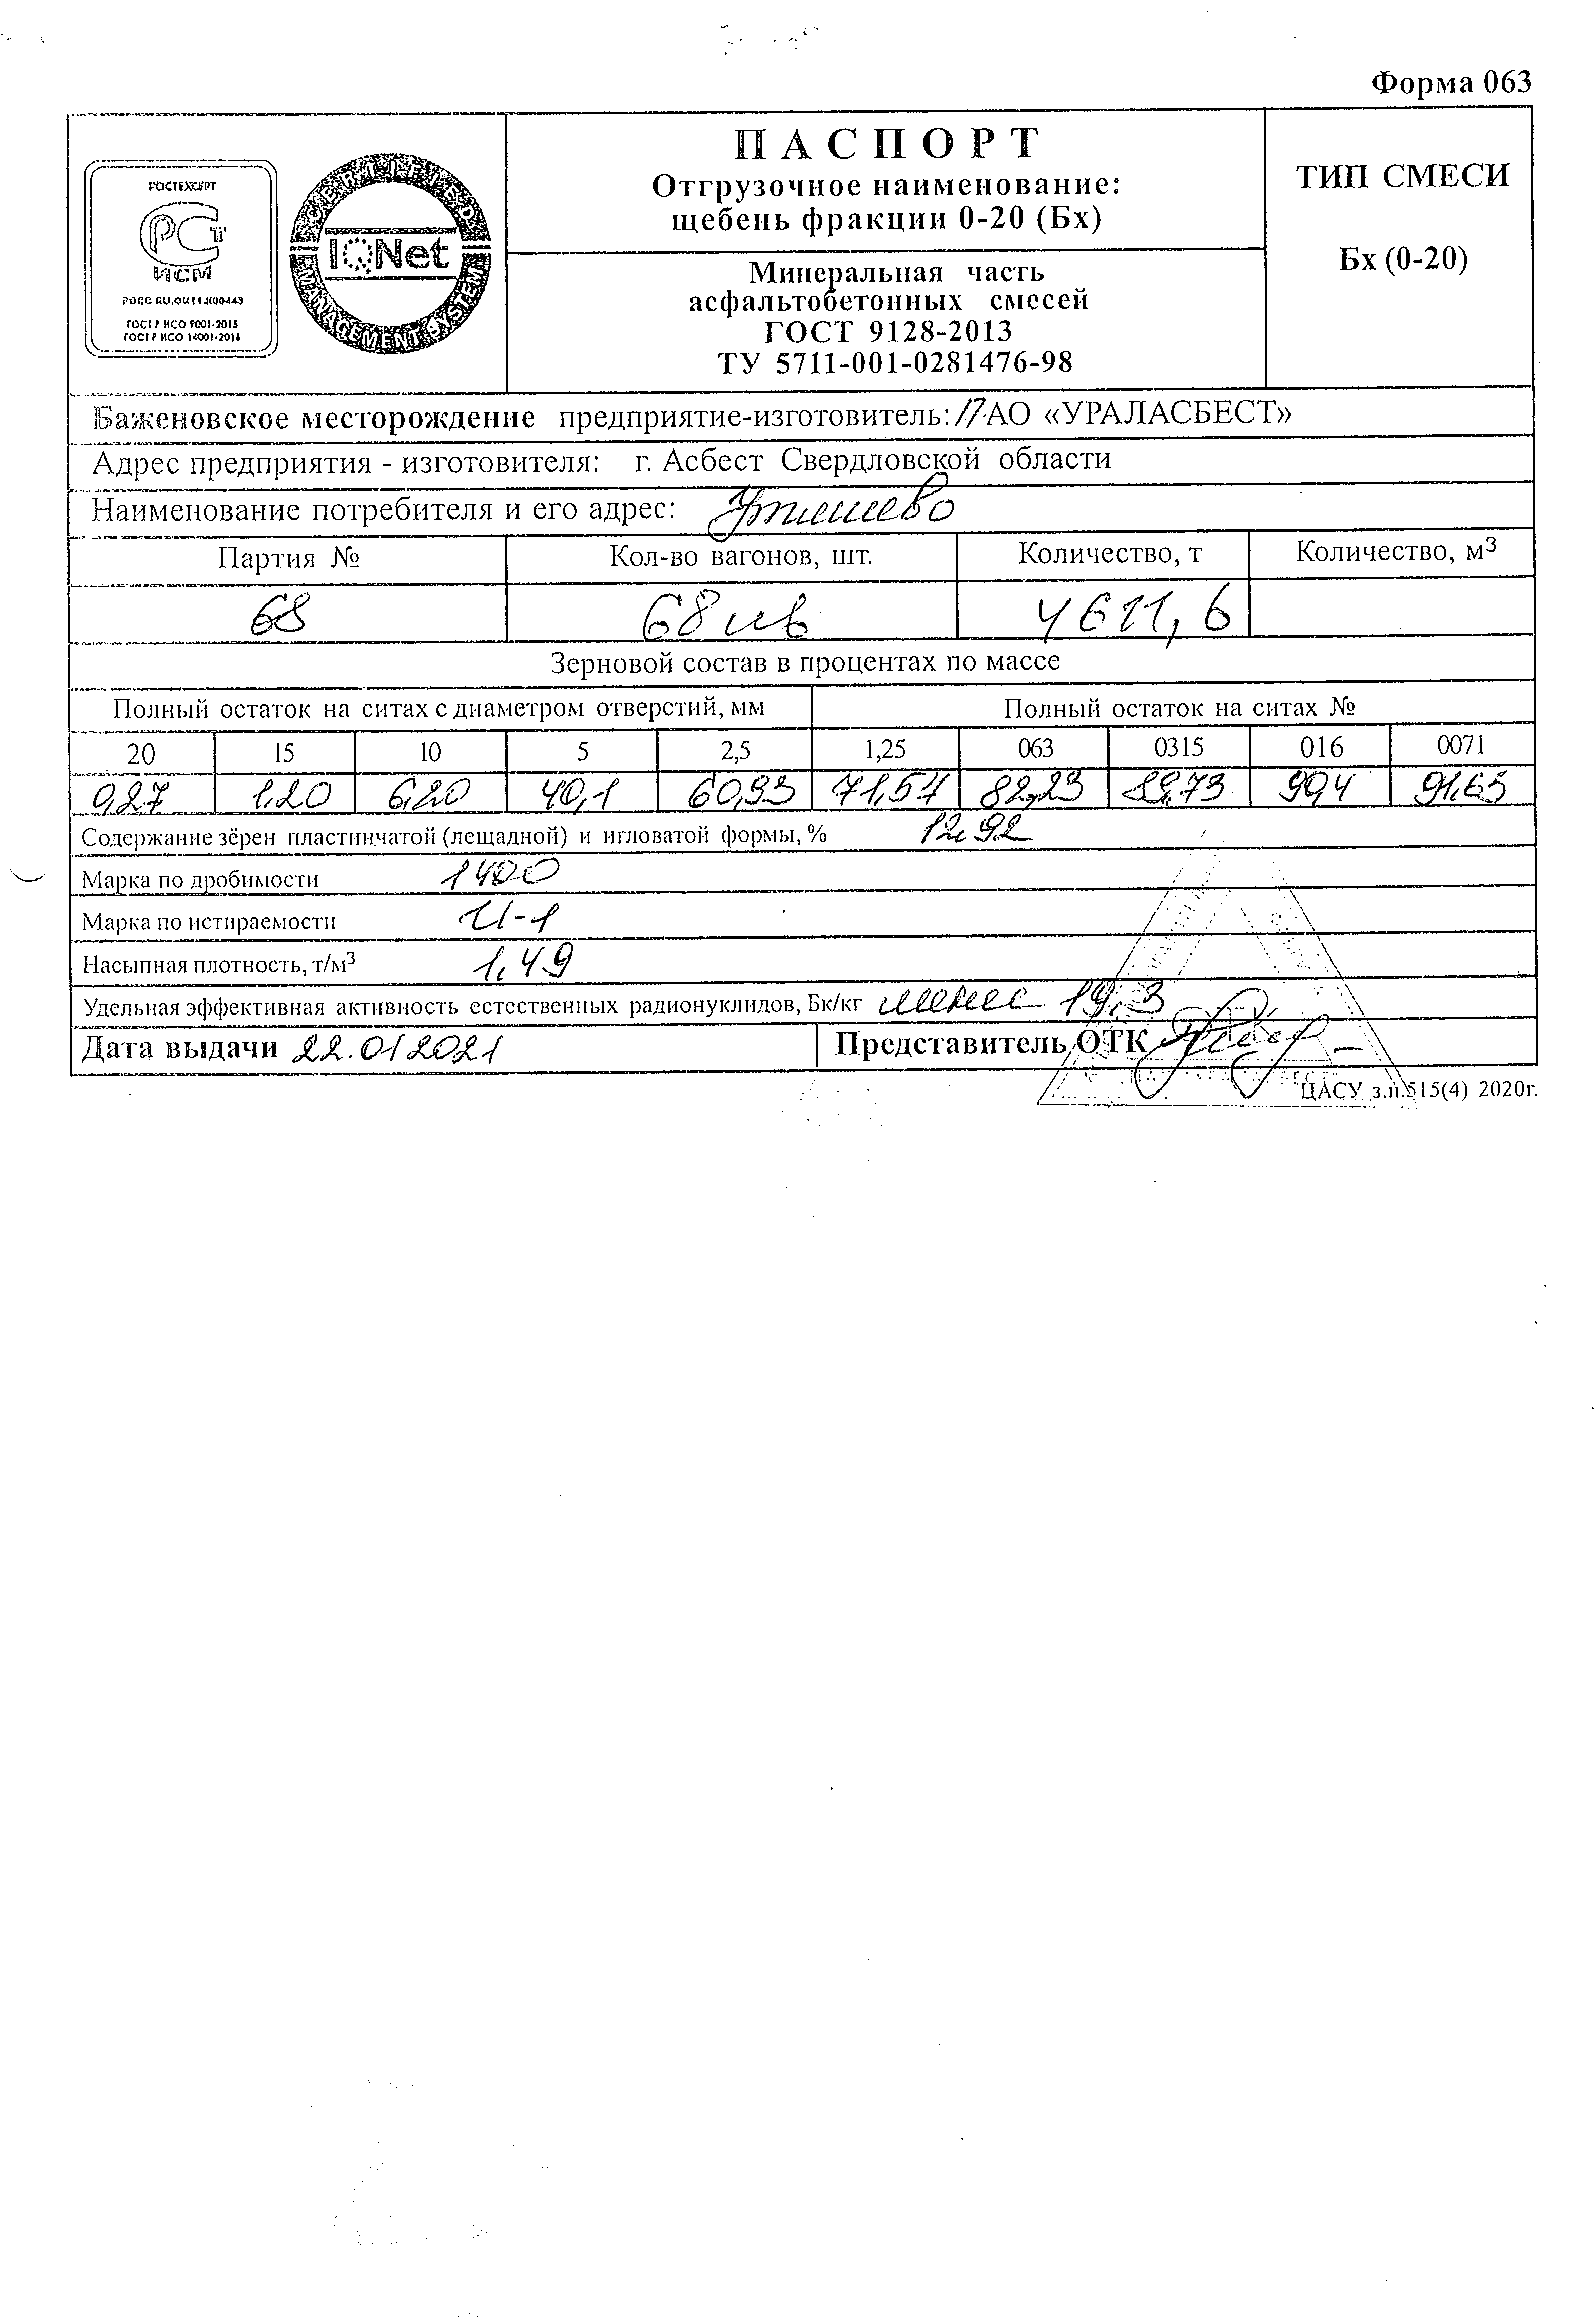 Форма 063
РОСТЕХСЕРТ
РСТ
ИСМ
ГОСТ Р ИСО 9001-2015
ГОСТ Р ИСО 14001-2016
CERTIFIED
IQNet
MANAGEMENT SYSTEM
ПАСПОРТ
Отгрузочное наименование:
щебень фракции 0-20 (Бх)
Минеральная часть
асфальтобетонных смесей
ГОСТ 9128-2013
ТУ 5711-001-0281476-98
ТИП СМЕСИ
Бх (0-20)
Баженовское месторождение предприятие-изготовитель: ПАО «УРАЛАСБЕСТ»
Адрес предприятия - изготовителя: г. Асбест Свердловской области
Наименование потребителя и его адрес:
Партия № Кол-во вагонов, шт. Количество, т Количество, м3
68 68 4611,6
Зерновой состав в процентах по массе
Полный остаток на ситах с диаметром отверстий, мм Полный остаток на ситах №
20 15 10 5 2,5 1,25 063 0315 016 0071
0,27 1,20 6,20 40,1 60,93 71,57 82,23 90,4 91,65
Содержание зёрен пластинчатой (лещадной) и игловатой формы, % 12,92
Марка по дробимости 1400
Марка по истираемости И-1
Насыпная плотность, т/м3 1,49
Удельная эффективная активность естественных радионуклидов, Бк/кг менее
Дата выдачи 22.01 2021 Представитель ОТК
ЦАСУ з.п.515(4) 2020г.